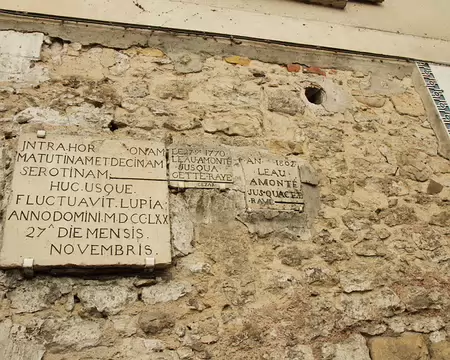 INTRA HOR ONAM
MATUTINAM ET DECIMAM
SEROTINAM
HUC. USQUE.
FLUCTUAVIT. LUPIA.
ANNO DOMINI. M.DCCLXX
27ᴬ DIE MENSIS.
NOVEMBRIS.
1770
LEAU A MONTÉ
JUSQUA
CETTE RAYE
AN 1802
LEAU
AMONTÉ
JUSQUACETE
RAYE